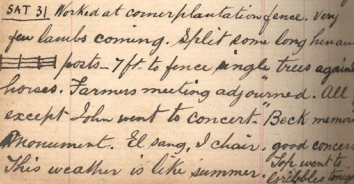 SAT 31 Worked at corner plantation fence. Very
few lambs coming. Split some long
posts - 7ft to fence single trees against
horses. Farmers meeting adjourned. All
except John went to concert "Beck memori
Monument. El sang, I chair. good concer
This weather is like summer. Joh went to
Gribbles tonig